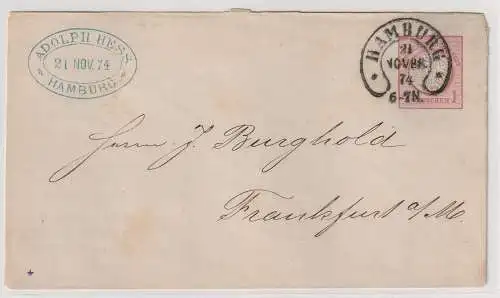 ADOLPH HESS
21 NOV. 74
HAMBURG
HAMBURG
21
NOVBR.
74
6-7N.
GROSCHEN 1
Herrn J. Burghold
Frankfurt a/M.